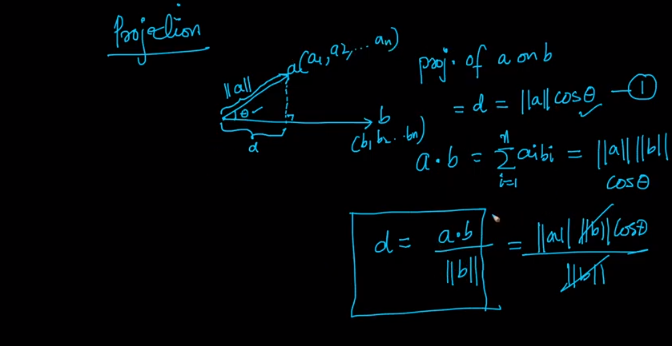 Projection
a(a1, a2, ... an)
||a||
θ
b
(b1, b2 ... bn)
d
proj. of a on b
= d = ||a|| cosθ — ①
a · b = n∑i=1 aibi = ||a|| ||b||
cosθ
d = a·b / ||b|| = ||a|| ||b|| cosθ / ||b||